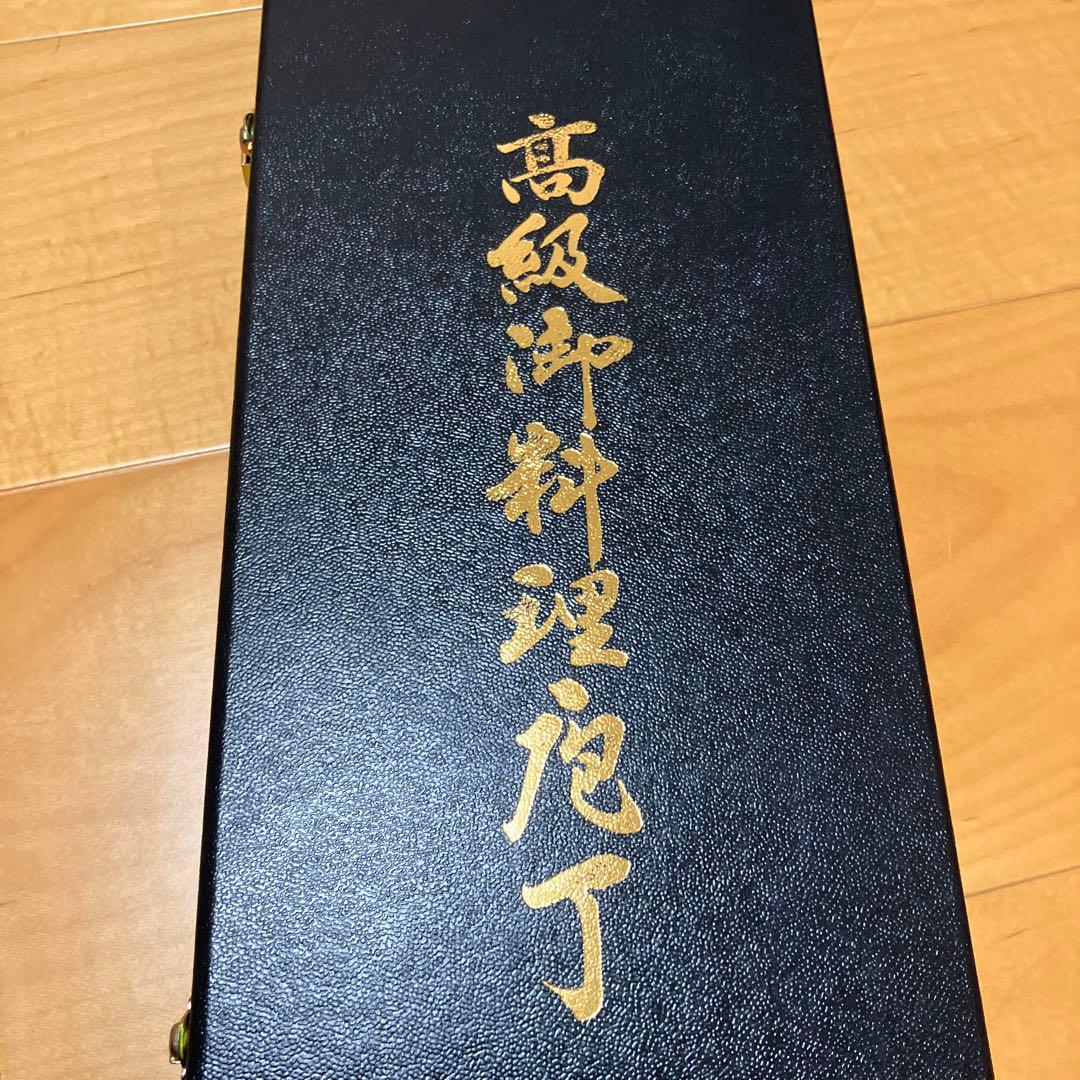 高級御料理庖丁